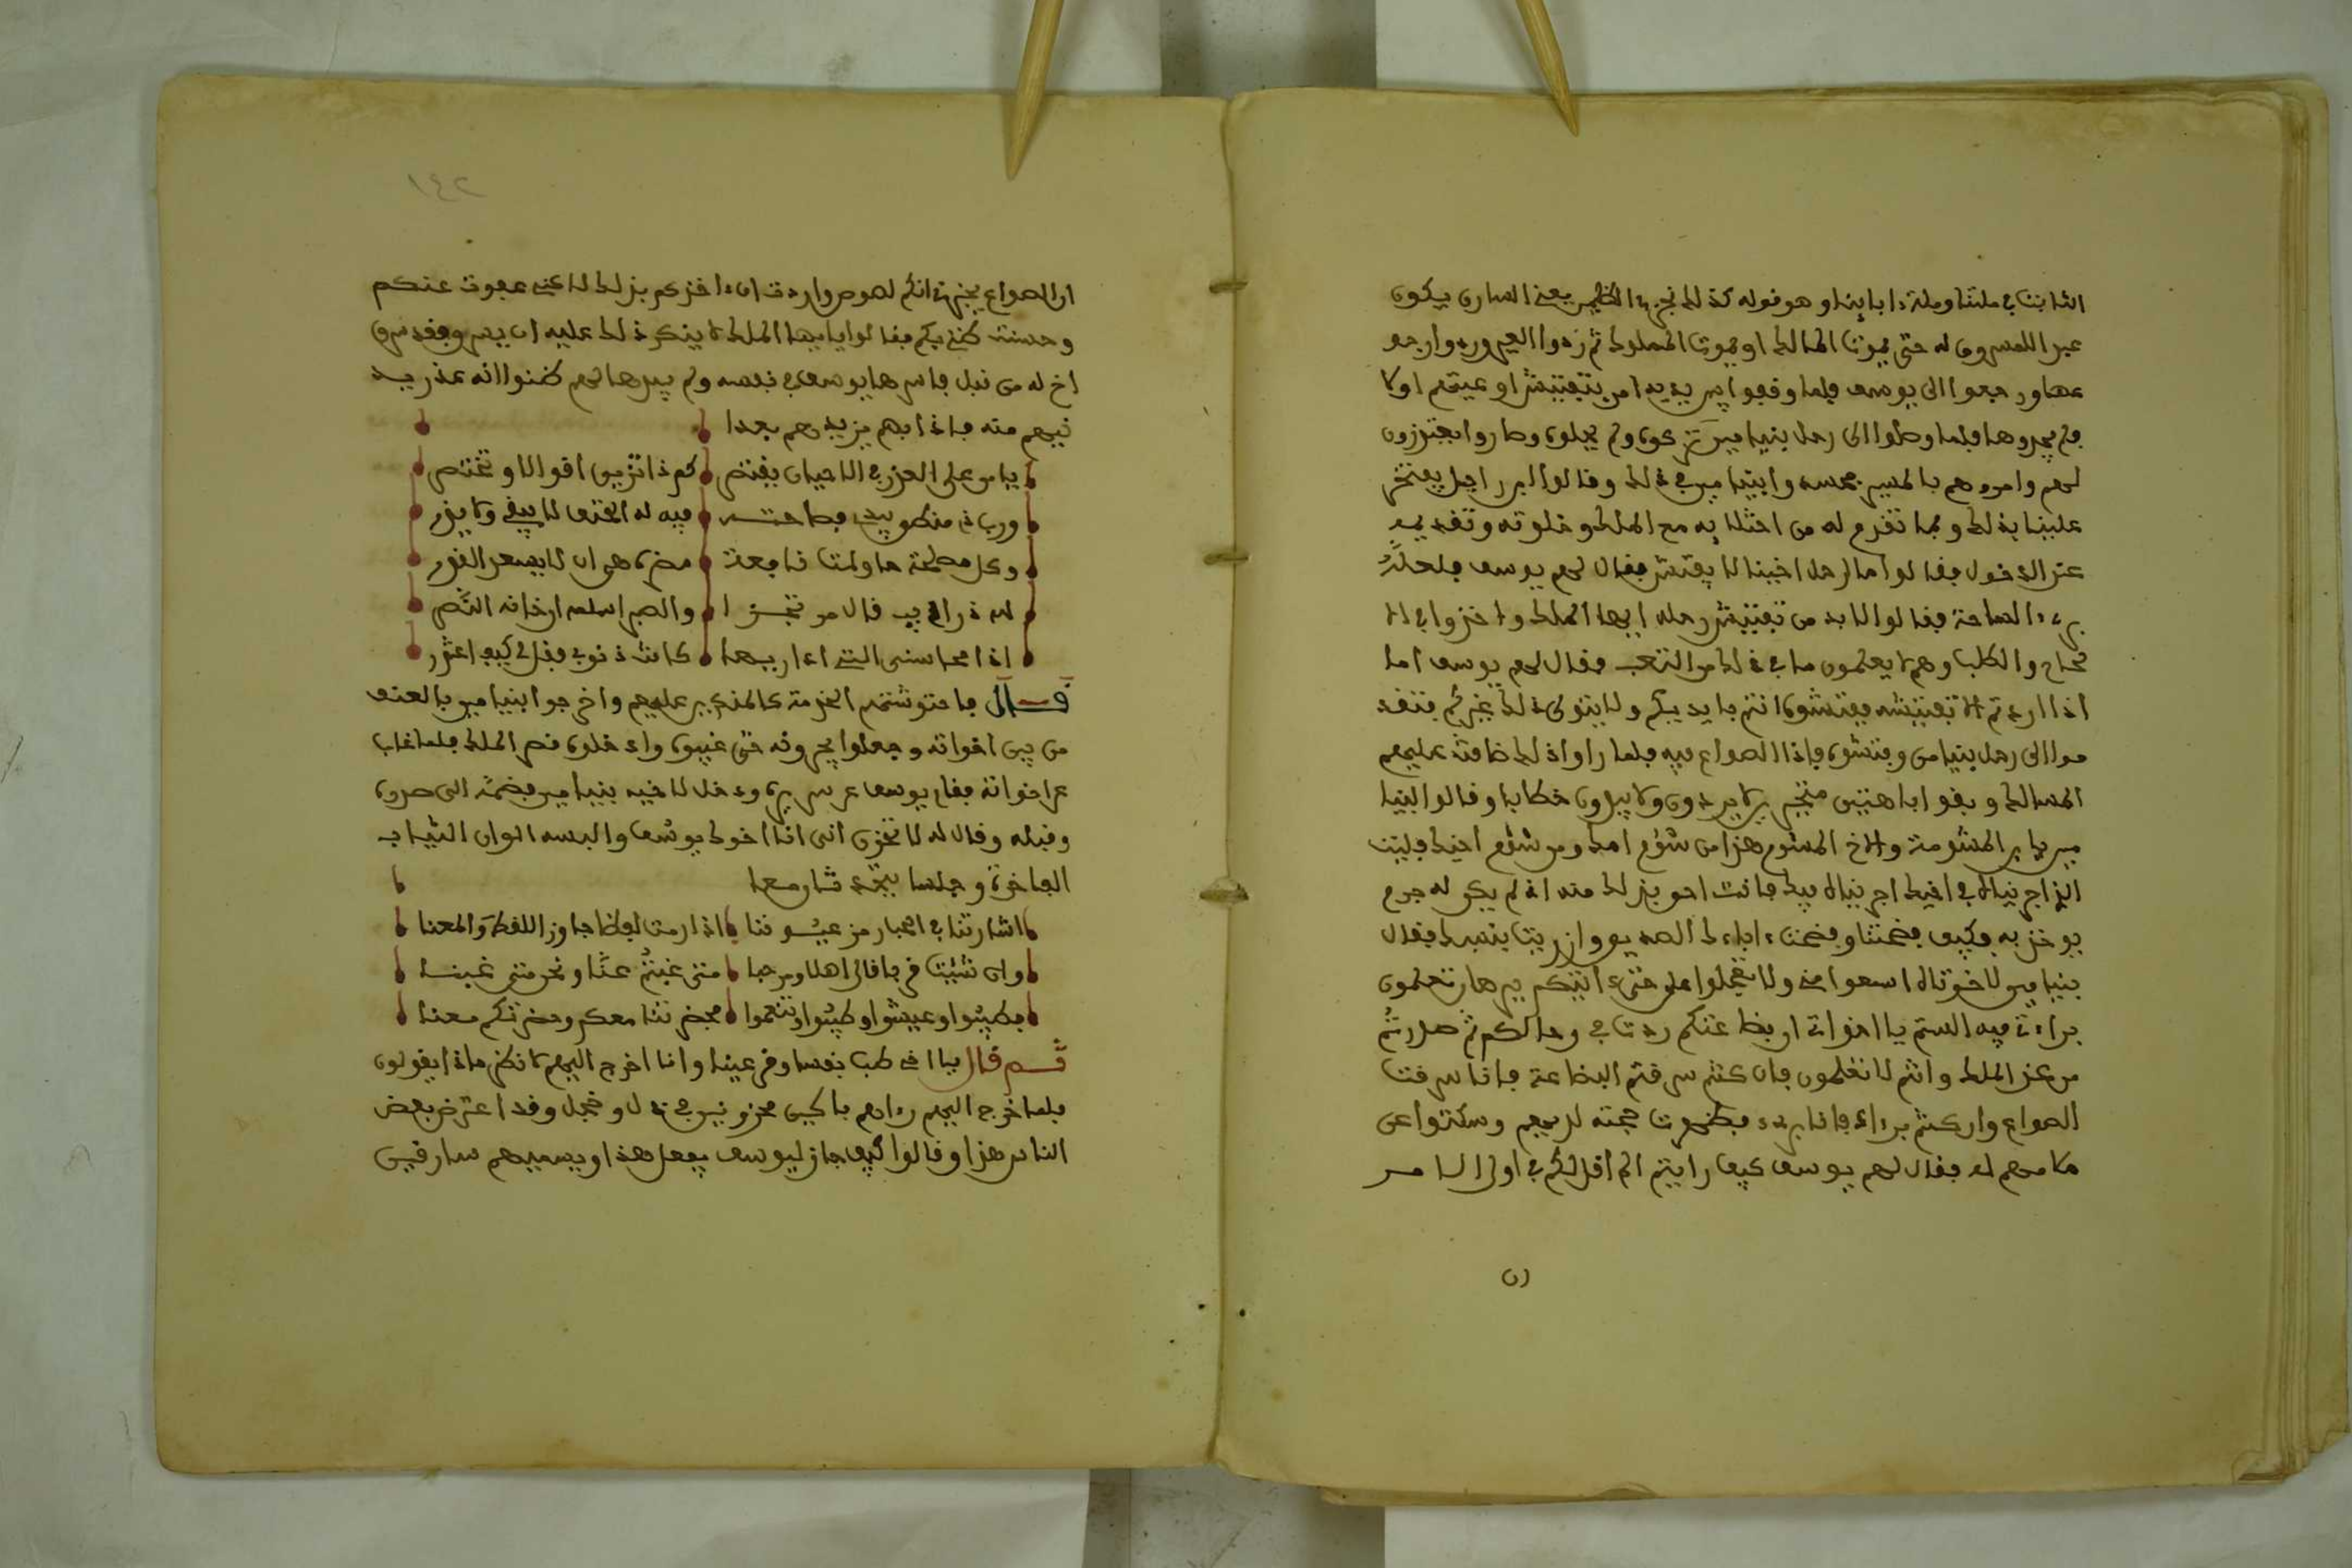 الثابت في ملتنا وملة ءابائنا وهو قوله كذلك نجزي الظلمين يعني السارق يكون
عبدا للمسروق له حتى يموت المالك او يموت المملوك ثم ردوا العير وردوا رجعو
عها ورجعوا الى يوسف فلما وقفوا بين يديه امر بتفتيش اوعيتهم اولا
فلم يجدوها فلما وصلوا الى رحل بنيامين تركوه ولم يحلوه وصاروا يعتزون
لهم وامروهم بالمسير
علينا بذلك ومما تقدم له من اختلائه مع الملك وخلوته وتقديمه
عند الدخول فقالوا ما لرحل اخينا لا يفتش فقال لهم يوسف فلعله
بريء الساحة فقالوا لا بد من تفتيش رحله ايها الملك واخذوا في
لحاح والطلب وهم لا يعلمون ما في ذلك من التعب فقال لهم يوسف اما
اذا اردتم تفتيشه ففتشوه انتم بايديكم ولا يتولى ذلك غيركم فتقد
موا الى رحل بنيامن وفتشوه فاذا الصواع فيه فلما راوا ذلك ضاقت عليهم
المسالك وبقوا باهتين متحيرين لا يردون ولا يبدون خطابا وقالوا لبنيا
مين يابن المشومة والاخ المشوم هذا من شؤم امك ومن شؤم اخيك فليت
الذي اجرينا في اخيك اجرينا فيك فانت احق بذلك منه اذ لم يكن له جرم
يوخذ به فكيف فضحتنا وفضحت ءاباءك الصديقين وازريت بنسبك فقال
بنيامين لاخوته اسمعوا مني ولا تعجلوا علي حتى ءاتيكم ببرهان تعلمون
براءتي فيه الستم يا اخواتي اوبضاعتكم ردت في رحالكم ثم صدرتم
من عند الملك وانتم لا تعلمون فان كنتم سرقتم البضاعة فانا سرقت
الصواع وان كنتم برءاء فانا بريء فظهرت حجته لديهم وسكتوا عن
ملامهم له فقال لهم يوسف كيف رايتم الم اقل لكم في اول الامر
١٤٢
ان الصواع يخبرني انكم لصوص واردت ان ءاخذكم بذلك لاكني عفوت عنكم
وحسنت ظني بكم فقالوا يايها الملك لا ينكر ذلك عليه ان يسرق فقد سرق
اخ له من قبل فاسرها يوسف في نفسه ولم يبدها لهم ظنوا انه عند ريبـ
تبهم منه فاذا بهم يزيدهم بعدا
يا من على الحزن في الاحيان يقتصر كم ذا تزين اقوالا وتختصر
ورب ذي منطق فصاحتـه فيه له الحتف لا يبقي ولا يذر
وكل مصلحة حاولت نافعة مضرة هي ان لا يسعد القدر
والصبر اسلم ان خانه النصر
اذا محاسني التي اءاربها كانت ذنوبي فقل لي كيف اعتذر
قال فاحتوشتهم الخدمة كالمنكرين عليهم واخرجوا بنيامين بالعنف
من بين اخوانه وجعلوا يجرونه حتى غيبوه وادخلوه قصر الملك فلما غاب
عن اخوانه فقام يوسف عن سريره ودخل لاخيه بنيامين فضمه الى صدره
وقبله وقال له لا تحزن اني انا اخوك يوسف والبسه الوان الثياب
الفاخرة وجلسا يتحدثان معا
اشارتنا في الحب رمز عيوننا اذا رمت لفظا جاوز اللفظ والمعنا
وان شئت فرحا قال اهلا ومرحبا متى غبتم عنا ونحن متى غبنا
فطيبوا وعيشوا وطيبوا وتنعموا فحضرتنا معكم وحضرتكم معنا
ثم قال يا اخي طب نفسا وقر عينا وانا اخرج اليهم لانظر ماذا يقولون
فلما خرج اليهم رءاهم باكين محزونين في ذل وخجل وقد اعترض بعض
الناس هذا وقالوا كيف جاز ليوسف يفعل هذا ويسميهم سارقين